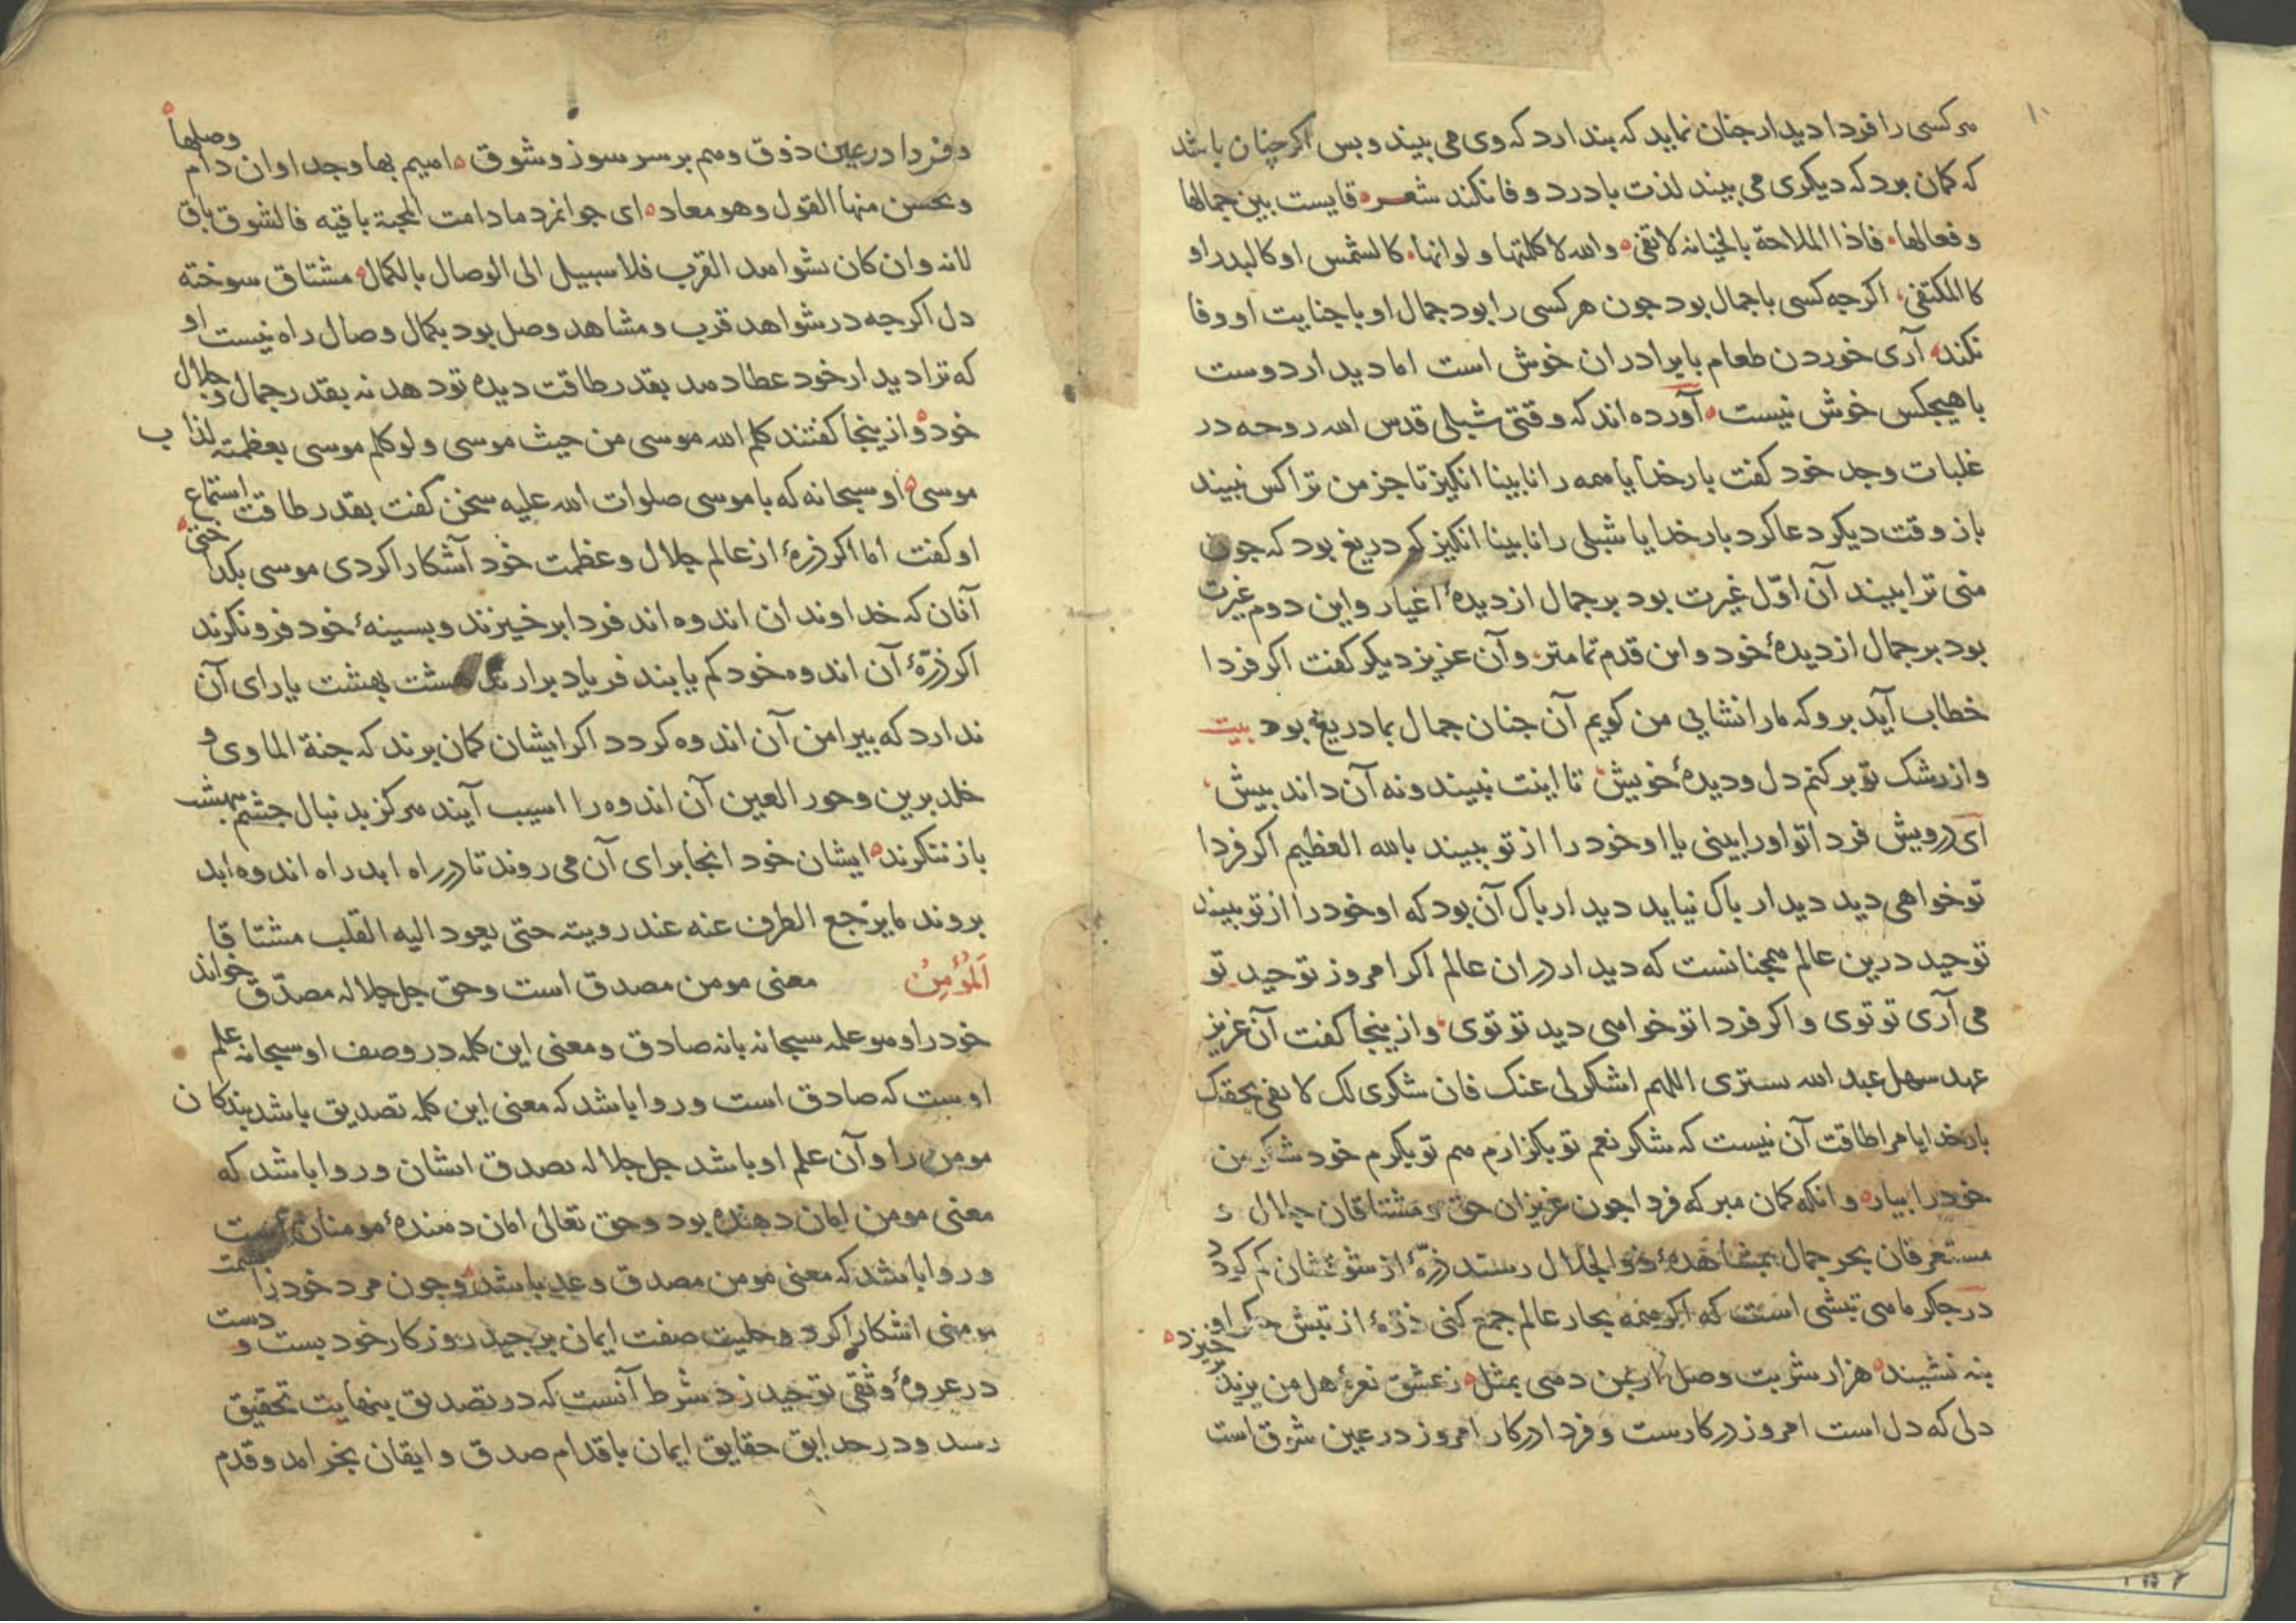 ۱۰
هر کسی را فردا دیدار جنان نماید که بندارد که وی می بیند و بس اکر چنان باشد
که کمان برد که دیکری می بیند لذت با درد وفا نکند شعر قایست بین جمالها
وفعالها فاذا الملاحة بالخیانه لاتفی والله لا کلمتها ولو انها کالشمس او کالبدر او
کالمکتفی اکرجه کسی با جمال بود جون هر کسی را بود جمال او با جنایت او وفا
نکند آری خوردن طعام با برادران خوش است اما دیدار دوست
با هیجکس خوش نیست آورده اند که وقتی شبلی قدس الله روحه در
غلبات وجد خود کفت بار خدایا همه را نابینا انکیز تا جز من ترا کس نبیند
باز وقت دیکر دعا کرد بار خدایا شبلی را نابینا انکیز که دریغ بود که جون
منی ترا بیند آن اوّل غیرت بود بر جمال از دیدهٔ اغیار و این دوم غیرت
بود بر جمال از دیدهٔ خود و این قدم تمامتر و آن عزیز دیکر کفت اکر فردا
خطاب آید برو که ما را نشایی من کویم آن جنان جمال بما دریغ بود بیت
و از رشک تو بر کنم دل و دیدهٔ خویش تا اینت نبیند و نه آن داند بیش
ای درویش فردا تو اورا بینی یا او خود را از تو بیند بالله العظیم اکر فردا
تو خواهی دید دیدار باک نیاید دیدار باک آن بود که او خود را از تو بیند
توحید درین عالم همجنانست که دیدار در ان عالم اکر امروز توحید تو
می آری تو توی و اکر فردا تو خواهی دید تو توی و ازینجا کفت آن عزیز
عهد سهل عبد الله ستری اللهم اشکر لی عنک فان شکری لک لا یفی بحقک
بار خدایا مرا طاقت آن نیست که شکر نعم تو بکزارم هم تو بکرم خود شکر من
خود را بیار و انکه کمان مبر که فردا جون عزیزان حق و مشتاقان جلال و
مستغرقان بحر جمال بمشاهدهٔ ذو الجلال رسند ذرّهٔ از شوقشان کم کردد
در جکر ماهی تبشی است که اکر همه بحار عالم جمع کنی ذرهٔ از تبش جکر او
بنه نشیند هزار شربت وصل ار بمن دهی بمثل ز عشق نعرهٔ هل من یزید خیزد
دلی که دل است امروز در کارست و فردا در کار امروز در عین شوق است
و فردا در عین ذوق و هم بر سر سوز و شوق اهیم بها وجدا وان دام وصلها
ویحسن منها القول وهو معاد ای جوانمرد ما دامت المحبة باقیه فالشوق باق
لانه وان کان بشواهد القرب فلا سبیل الی الوصال بالکمال مشتاق سوخته
دل اکرجه در شواهد قرب و مشاهد وصل بود بکمال وصال راه نیست او
که ترا دیدار خود عطا دهد بقدر طاقت دیده تو دهد نه بقدر جمال و جلال
خود و ازینجا کفتند کلم الله موسی من حیث موسی ولو کلم موسی بعظمته لذاب
موسی او سبحانه که با موسی صلوات الله علیه سخن کفت بقدر طاقت استماع
او کفت اما اکر ذرهٔ از عالم جلال و عظمت خود آشکارا کردی موسی بکداختی
آنان که خداوندان اندوه اند فردا بر خیزند و بسینهٔ خود فرو نکرند
اکر ذرّهٔ آن اندوه خود کم یابند فریاد برارند هشت بهشت یارای آن
ندارد که بیرامن آن اندوه کردد اکر ایشان کمان برند که جنة الماوی و
خلد برین و حور العین آن اندوه را اسیب آیند هرکز بدنبال جشم ببهشت
باز ننکرند ایشان خود انجا برای آن می روند تا در راه ابد راه اندوه ابد
بروند ما یرجع الطرف عنه عند رویته حتی یعود الیه القلب مشتاقا
اَلمُؤْمِنُ معنی مومن مصدق است و حق جل جلاله مصدّق خواند
خود را وهو علمه سبحانه بانه صادق و معنی این کلمه در وصف او سبحانه علم
اوست که صادق است و روا باشد که معنی این کلمه تصدیق باشد بندکان
مومن را و آن علم او باشد جل جلاله بصدق ایشان و روا باشد که
معنی مومن امان دهنده بود و حق تعالی امان دهندهٔ مومنان است
و روا باشد که معنی مومن مصدق وعد باشد و جون مرد خود را سمت
مومنی اشکارا کرد و حلیت صفت ایمان بر جید روزکار خود بست و دست
در عروهٔ وثقی توحید زد شرط آنست که در تصدیق بنهایت تحقیق
رسد و در حدایق حقایق ایمان باقدام صدق و ایقان بخرامد و قدم